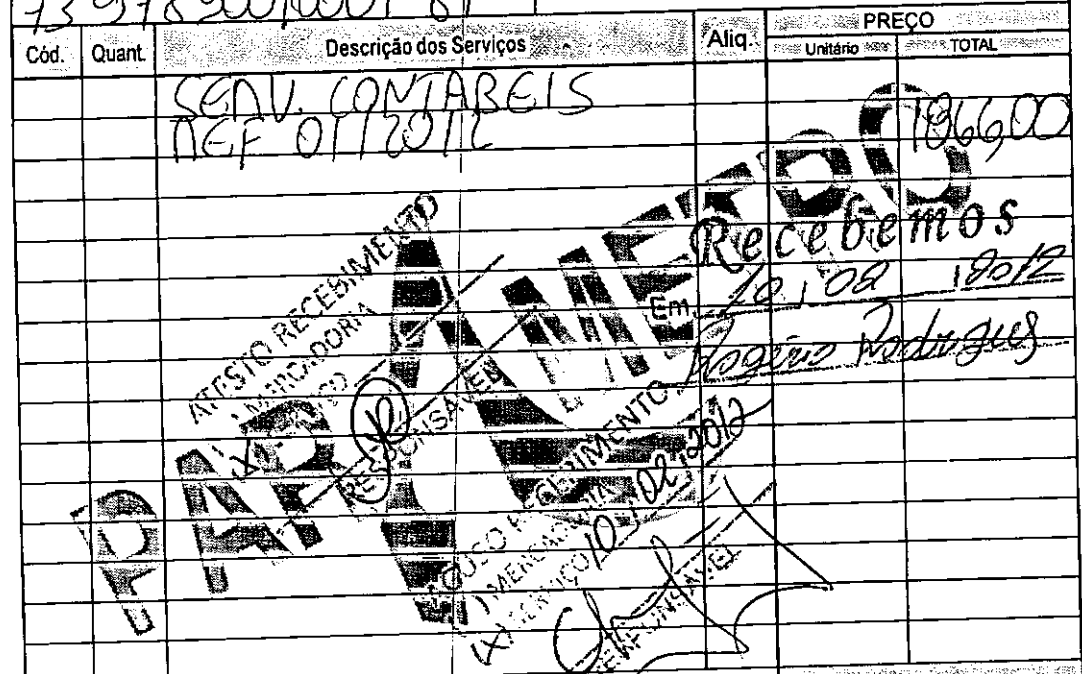 PREÇO
Cód. Quant. Descrição dos Serviços Aliq. Unitário TOTAL
SERV. CONTABEIS
REF 01/2012 1866,00
Recebemos
Em 10 / 02 / 2012
Rogério Rodrigues
ATESTO RECEBIMENTO
( ) MERCADORIA
RESPONSAVEL
ACUSO RECEBIMENTO
( ) MERCADORIA
(X) SERVIÇO 10/02/2012
RESPONSAVEL